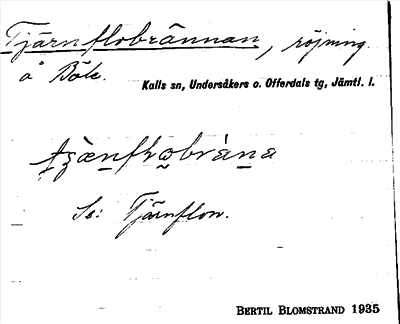 Tjärnflobrännan, röjning.
å Böle.
Kalls sn, Undersåkers o. Offerdals tg, Jämtl. l.
Se: Tjärnflon.
BERTIL BLOMSTRAND 1935